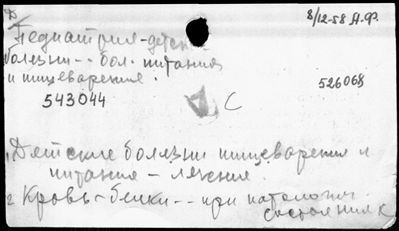 8/12-58 А.Ф.
Педиатрия-детские
болезни -- бол. питания
и пищеварения.
526068
543044
С
1. Детские болезни пищеварения и
питания - лечение.
2 Кровь - белки -- при патологич.
состояниях